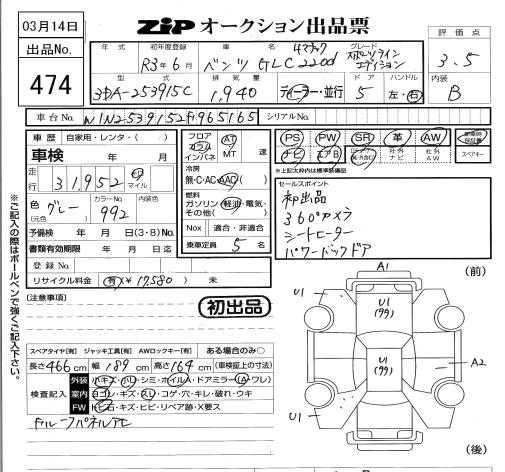 03月14日
ZiP オークション出品票
出品No.
474
評価点
3.5
内装
B
年式 初年度登録 車名 グレード
R3年6月 ベンツ GLC220d 4マチック スポーツラインエディション
型式 排気量 ドア ハンドル
3DA-253915C 1,940 ディーラー・並行 5 左・右
車台No. W1N2539152F965165 シリアルNo.
車歴 自家用・レンタ・( )
車検 年 月
走行 31,952 km マイル
色(元色) グレー カラーNo. 992 内装色
予備検 年 月 日(3・8)No.
書類有効期限 年 月 日迄
登録No.
リサイクル料金 有(¥17,580) 未
フロア コラム インパネ AT MT 速
冷房
無・C・AC・AAC
燃料
ガソリン・軽油・電気・その他( )
Nox 適合・非適合
乗車定員 5 名
PS PW SR 革 AW
ナビ エアB 社外ナビ 社外AW スペアキー
※上記太枠内は標準装備品
セールスポイント
初出品
360°カメラ
シートヒーター
パワーバックドア
(注意事項)
初出品
スペアタイヤ[有] ジャッキ工具[有] AWロックキー[有] ある場合のみ○
長さ466cm 幅189cm 高さ164cm (車検証上の寸法)
検査記入
外装 小キズ・小凹・シミ・ホイルA・ドアミラー(A・ワレ)
室内 ヨゴレ・キズ・スレ・コゲ・穴・キレ・破れ・ウキ
FW トビ石・キズ・ヒビ・リペア跡・X要ス
ルーフパネルAC
※ご記入の際はボールペンで強くご記入下さい。
(前)
A1
U1
U1
(99)
U1
(99)
A2
U1
U1
(後)